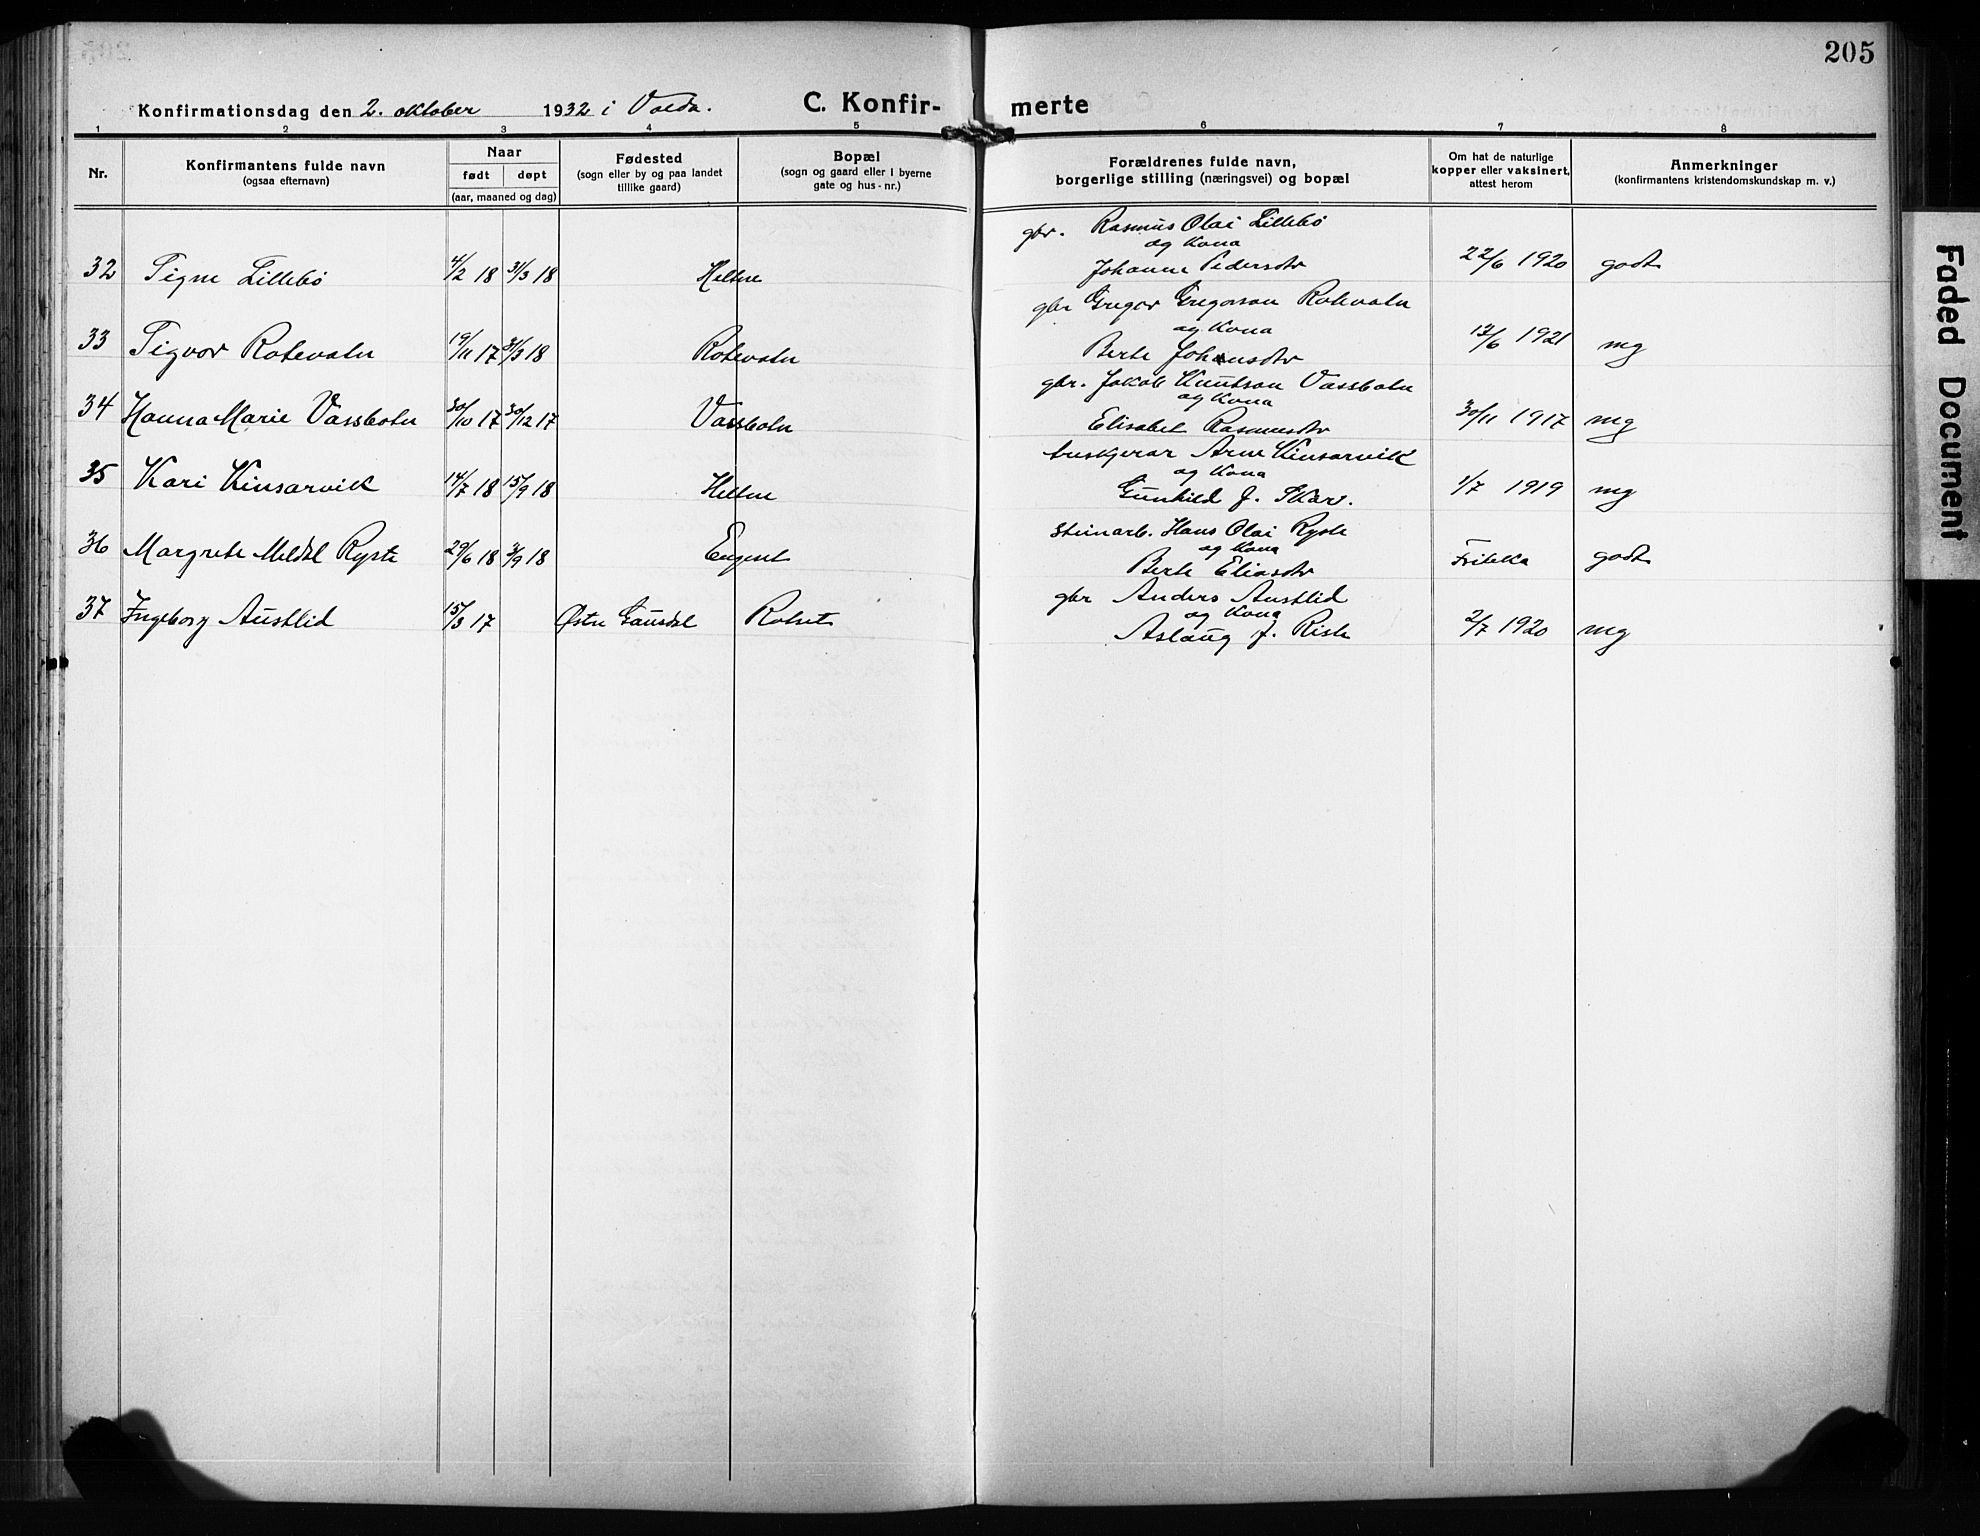 205
Konfirmationsdag den 2. oktober 1932 i Volda.
C. Konfir- merte
1 2 3 4 5 6 7 8
Nr.
Konfirmantens fulde navn
(ogsaa efternavn)
Naar
født døpt
(aar, maaned og dag)
Fødested
(sogn eller by og paa landet
tillike gaard)
Bopæl
(sogn og gaard eller i byerne
gate og hus-nr.)
Forældrenes fulde navn,
borgerlige stilling (næringsvei) og bopæl
Om hat de naturlige
kopper eller vaksinert,
attest herom
Anmerkninger
(konfirmantens kristendomskundskap m. v.)
gbr. Rasmus Olai Lillebø
og kona
32 Signe Lillebø 4/2 18 31/3 18 Heltne Johanne Pedersdtr 22/6 1920 godt
gbr Gregor Gregorson Rotevatn
og kona
33 Sigvor Rotevatn 19/11 17 31/3 18 Rotevatn Berte Johansdtr 13/6 1921 mg
gbr. Jakob Knutson Vassbotn
og kona
34 Hanna Marie Vassbotn 30/10 17 30/12 17 Vassbotn Elisabet Rasmusdtr 30/11 1917 mg
buskjerar Arne Kinsarvik
og kona
35 Kari Kinsarvik 14/7 18 15/9 18 Heltne Gunhild J. Skar. 1/7 1919 mg
steinarb. Hans Olai Ryste
og kona
36 Margrete Meldal Ryste 29/6 18 3/9 18 Engeset Berte Eliasdtr Friteke godt
gbr Anders Austlid
og kona
37 Ingeborg Austlid 15/3 17 Østre Gausdal Rotset Aslaug J. Riste 2/7 1920 mg
Faded Document